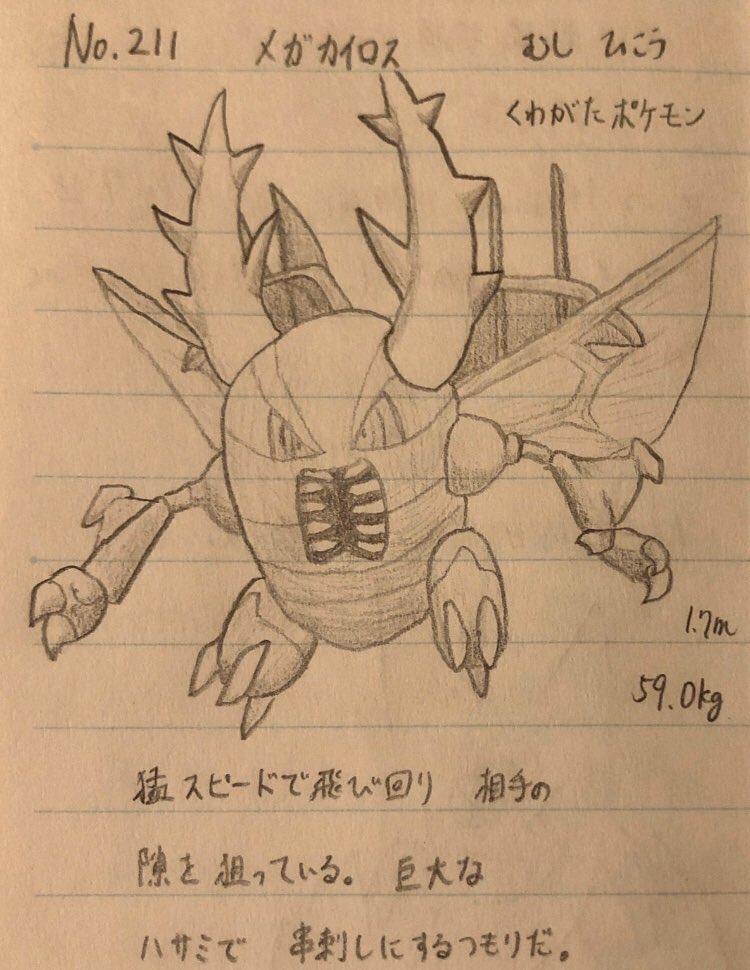 No.211 メガカイロス むし ひこう
くわがたポケモン
1.7m
59.0kg
猛スピードで飛び回り 相手の
隙を狙っている。 巨大な
ハサミで 串刺しにするつもりだ。